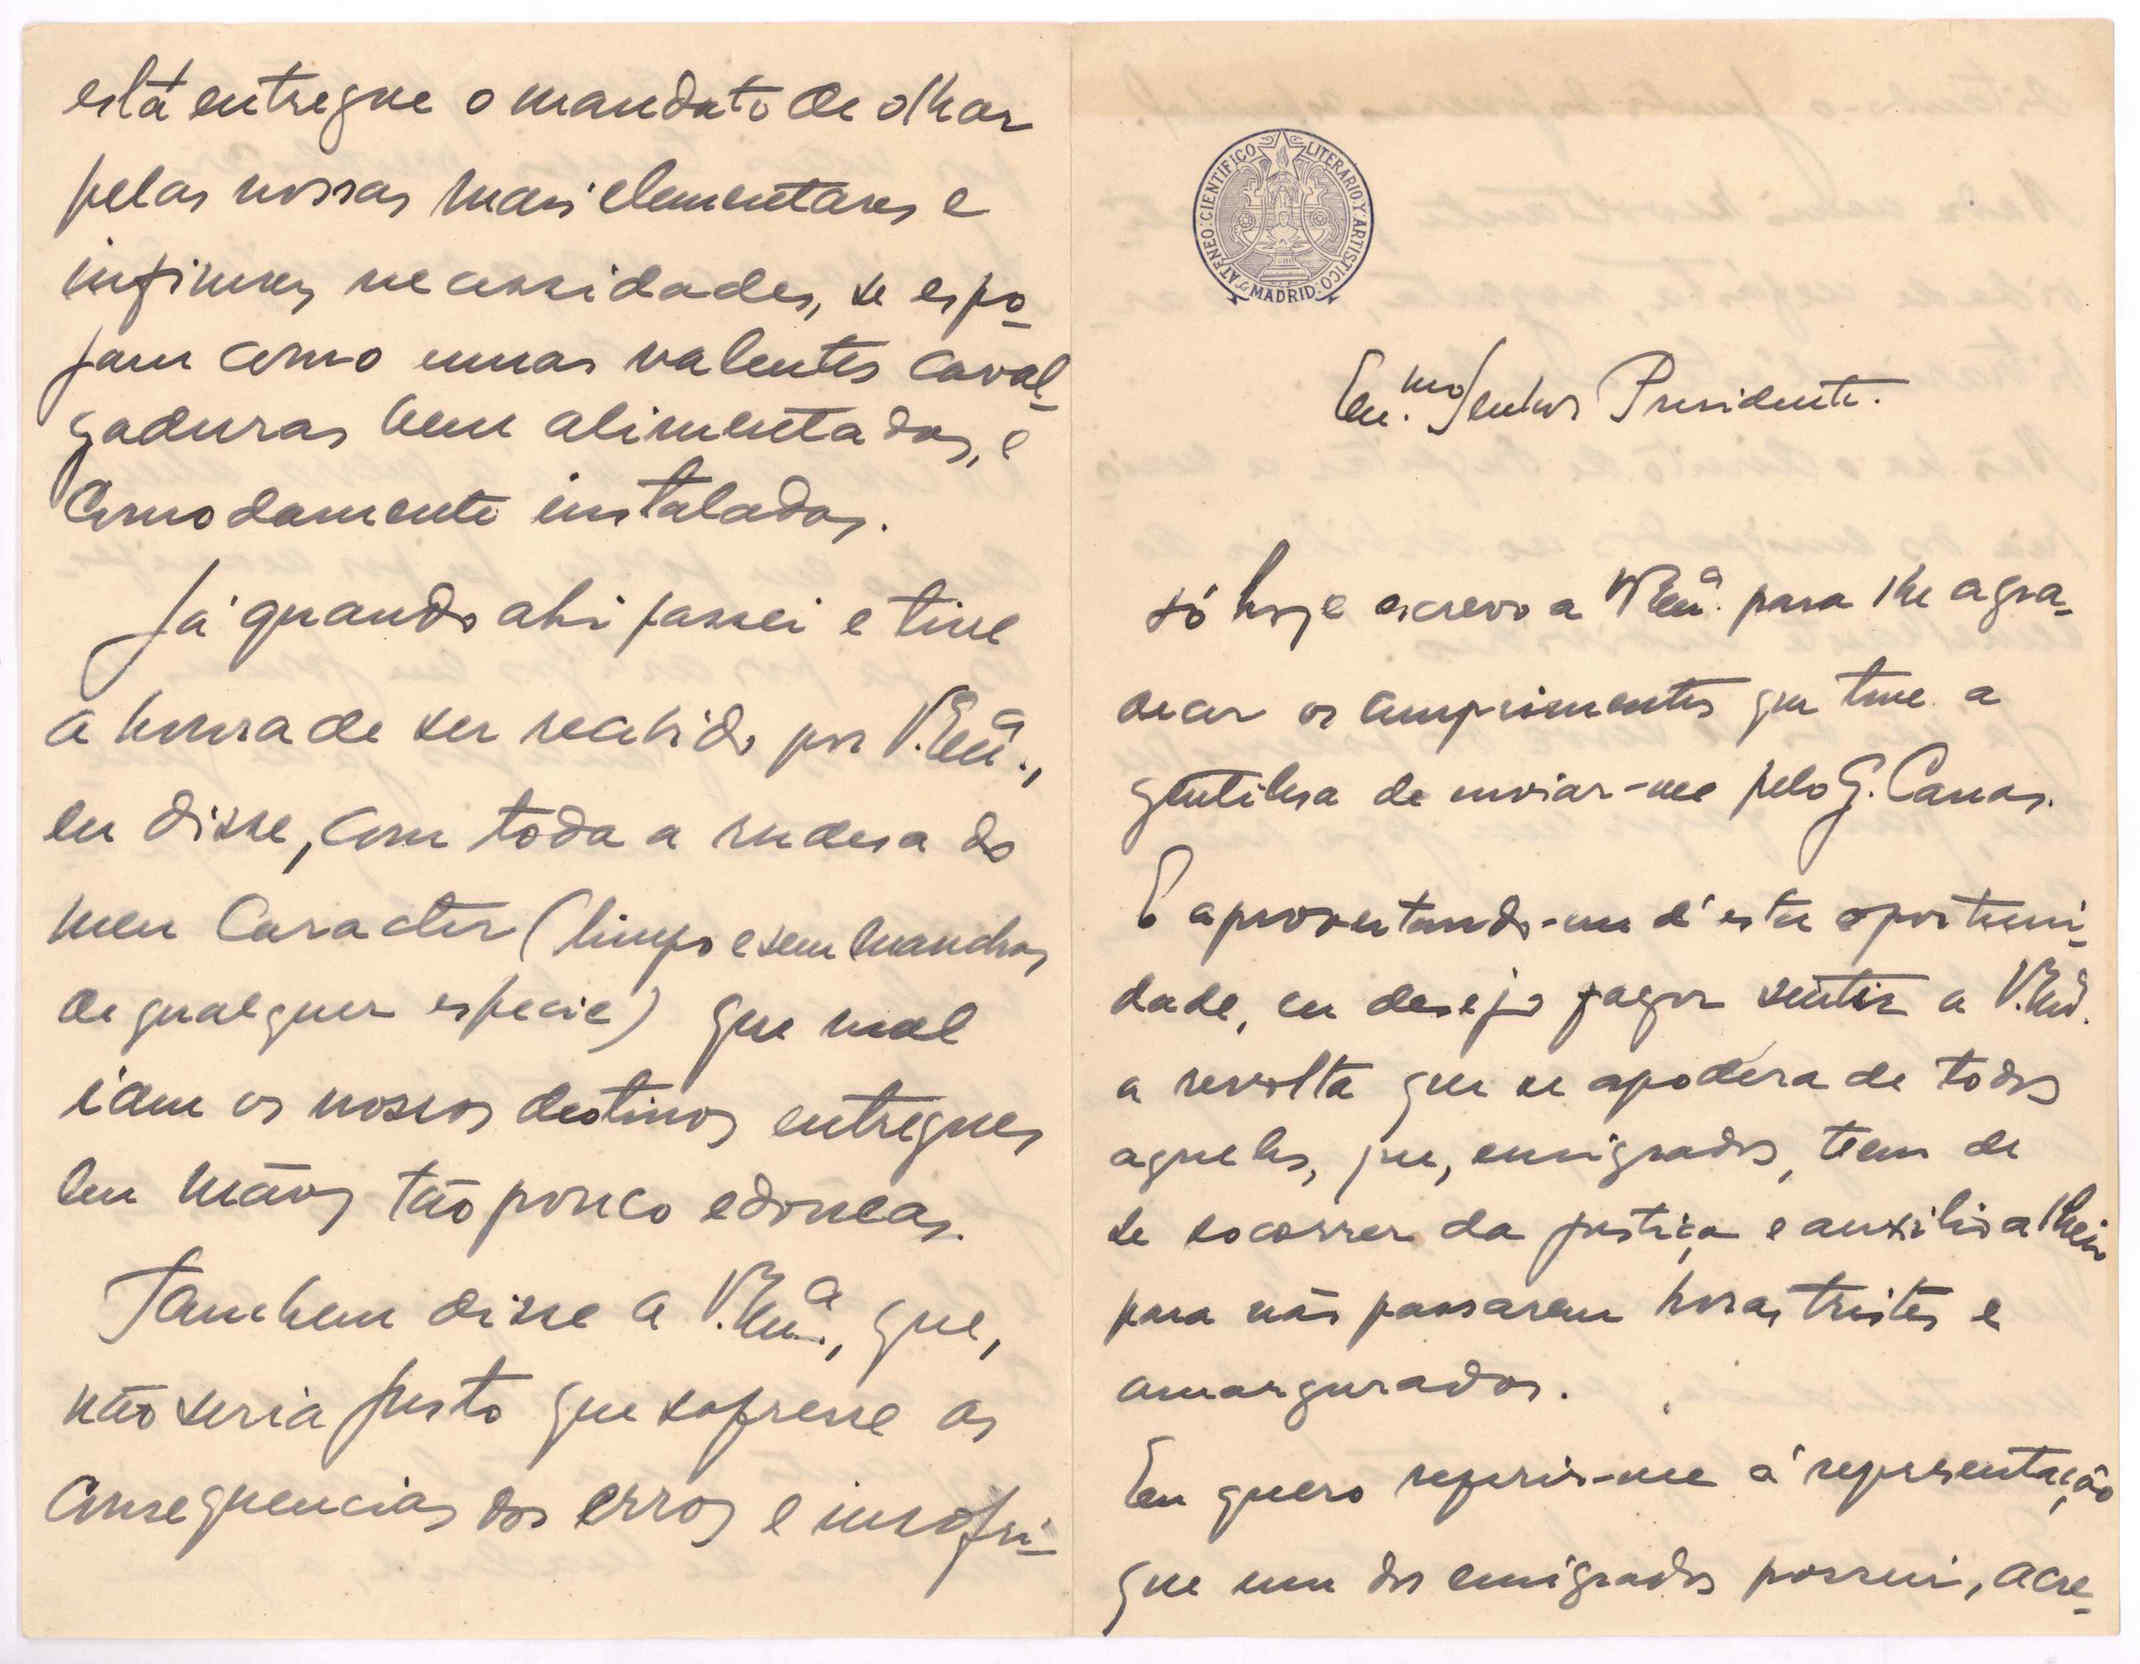 ATENEO CIENTIFICO LITERARIO Y ARTISTICO MADRID
Exu.mo Senhor Presidente.
Só hoje escrevo a V. Exa. para lhe agra-
decer os cumprimentos que teve a
gentilesa de enviar-me pelo G. Canas.
E aproveitando-me d'esta oportuni-
dade, eu desejo fazer sentir a V. Exa.
a revolta que se apodéra de todos
aqueles, que, emigrados, teem de
se socorrer da justiça e auxilio alheio
para não passarem horas tristes e
amarguradas.
Eu quero referir-me á representação
que um dos emigrados possui, acre-
está entregue o mandato de olhar
pelas nossas mais elementares e
infimas necessidades, se espo-
jam como umas valentes caval-
gaduras bem alimentadas, e
comodamente instaladas.
Já quando ahi passei e tive
a honra de ser recebido por V. Exa.,
eu disse, com toda a rudesa do
meu caracter (limpo e sem manchas
de qualquer especie) que mal
iam os nossos destinos entregues
em mãos tão pouco edoneas.
Tambem disse a V. Exa., que,
não seria justo que sofresse as
consequencias dos erros e insofri-